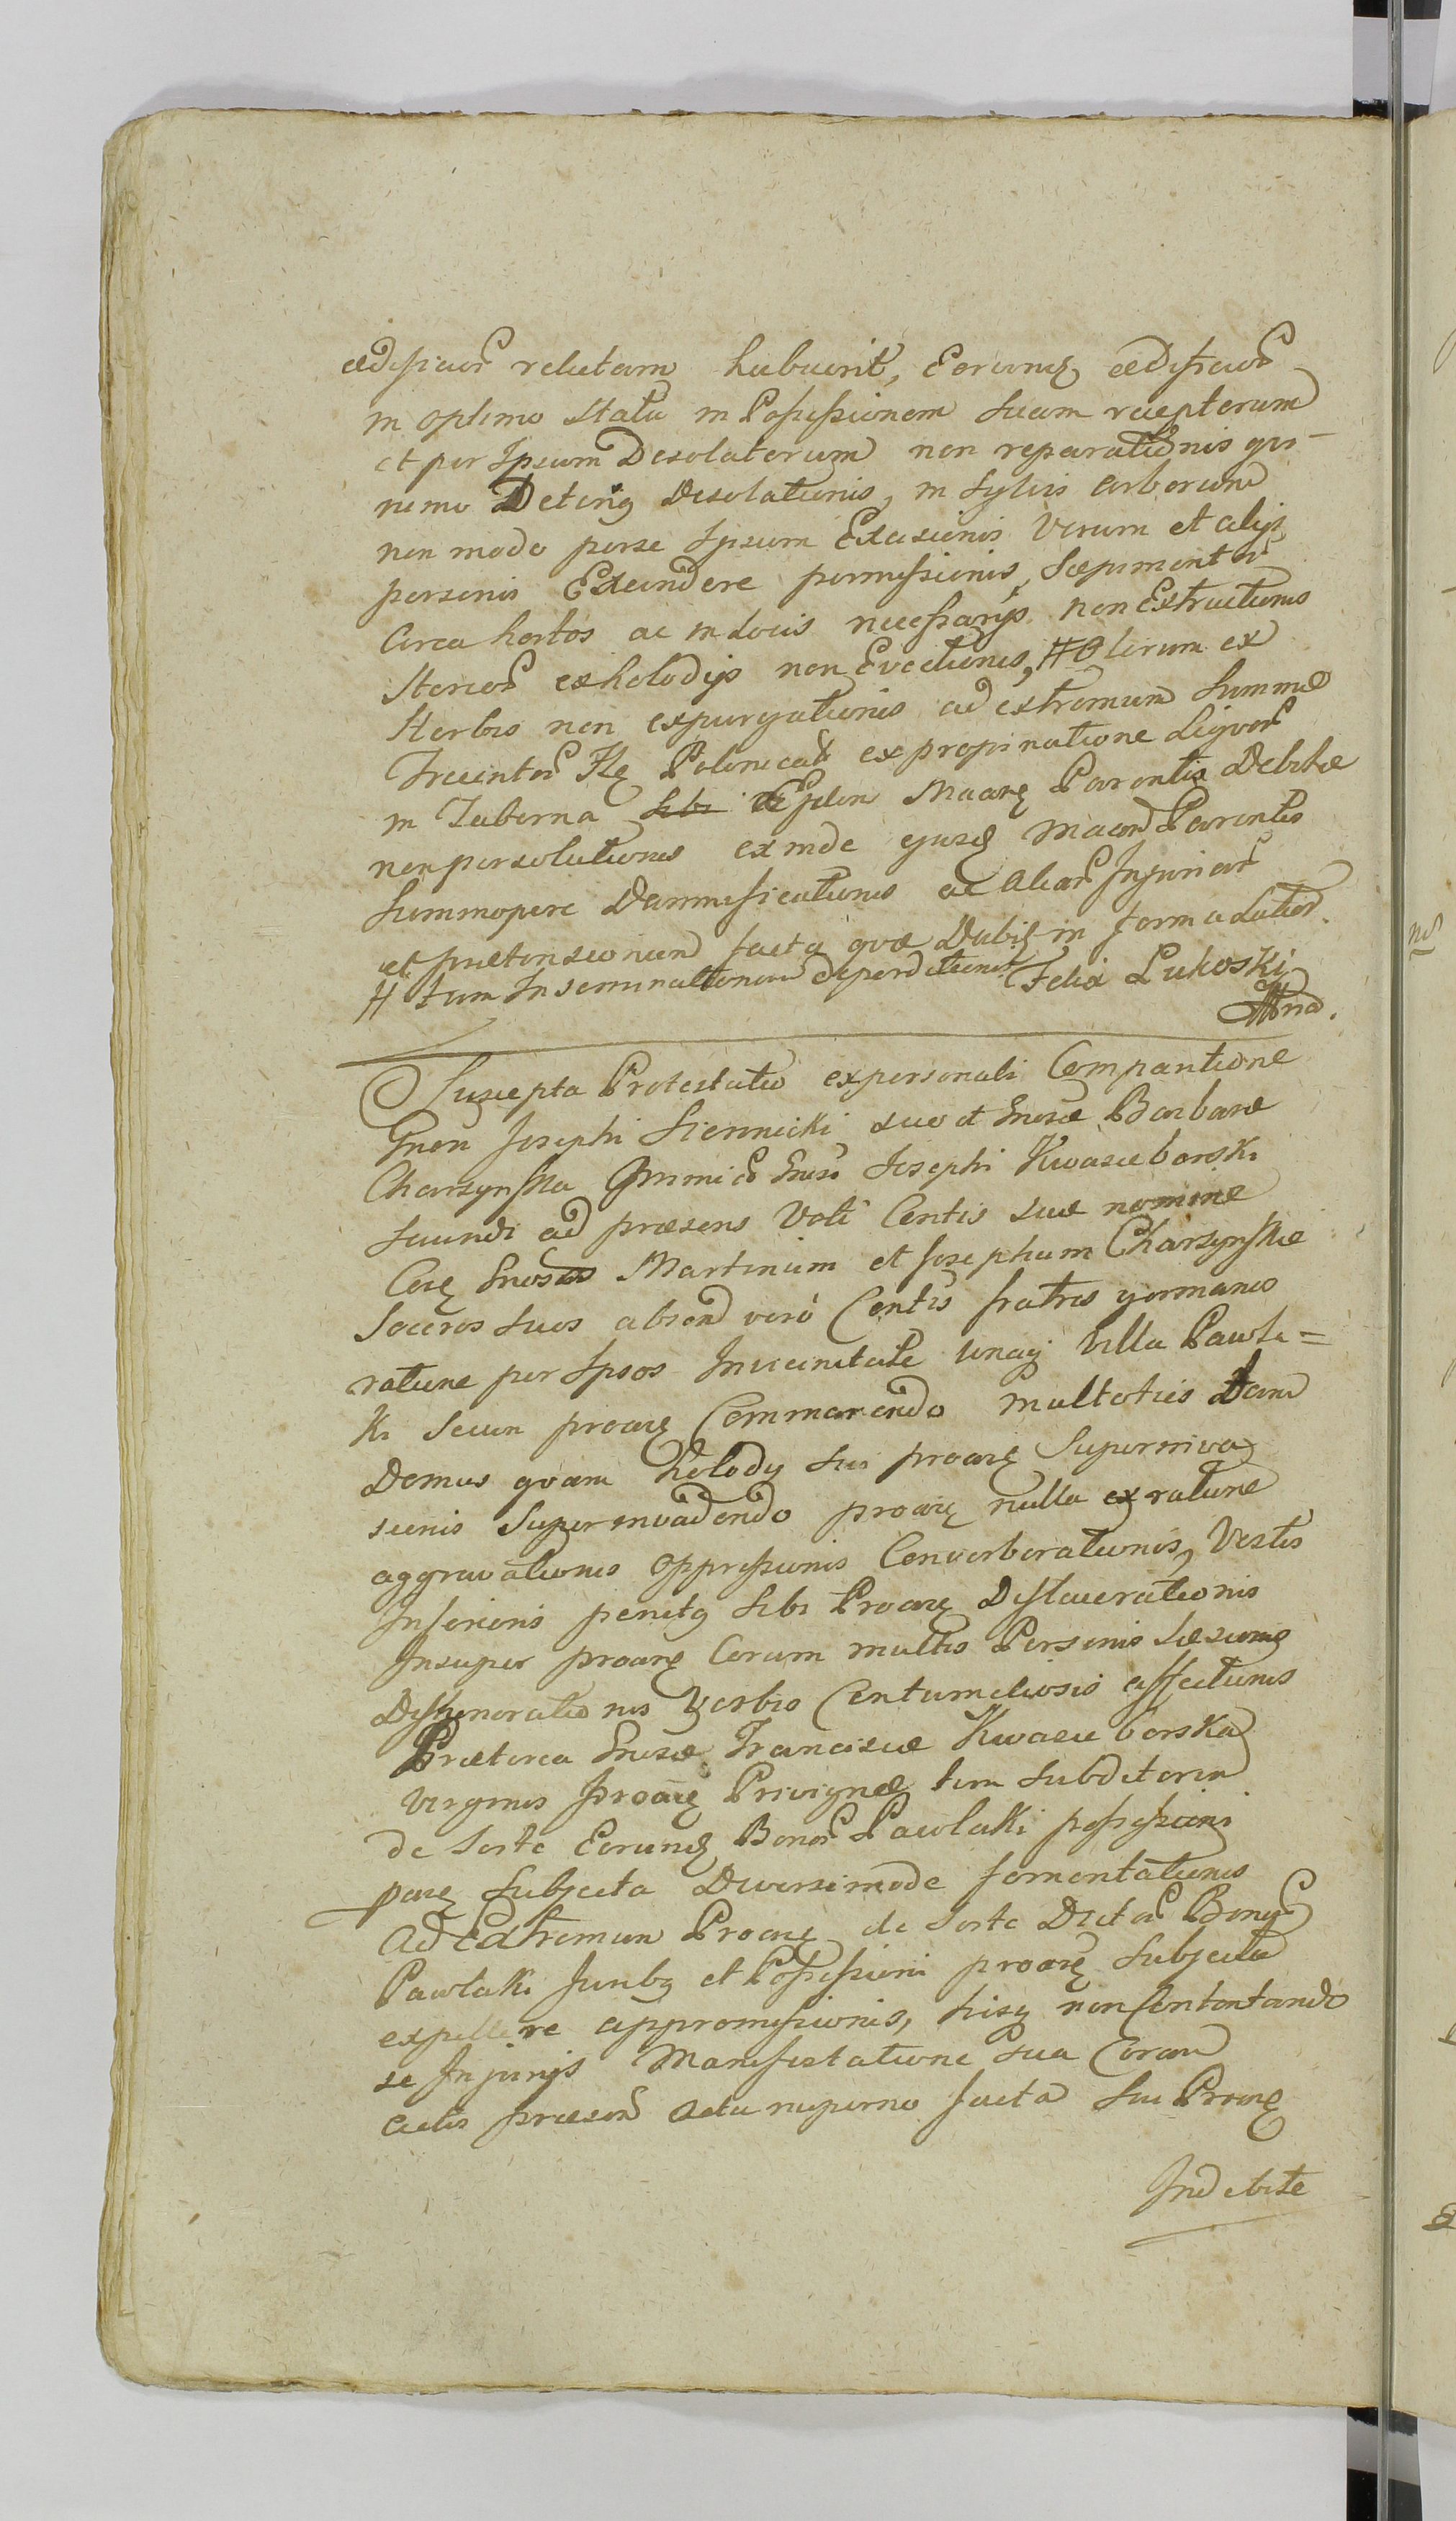 ædificior relutam habuerit, Eorumq ædificior
in optimo Statu in Possessionem suam receptorum
et per Ipsum Desolatorum non reparationis qvi-
nimo Deteriꝗ Desolationis, in Sylvis arborum
non modo per se Ipsum Excisionis Verum et alijs
personis Excindere permissionis, Sæpimentor
Circa hortos ac in Locis necessarijs non Extructionis
Stercor ex holodijs non Evectionis, # Olerum ex
Herbis non expurgationis ad extremum Summæ
Trecentor Flę Polonical ex propinatione Liqvor
in Taberna Sibi Ejden Maarę Parentis Debitæ
non persolutionis exinde ejusq Macor Parentis
Summopere Damnificationis ac aliar Injuriar
et prætensionum facta qvæ Dabiꝗ in forma Latior.
# tum Inseminationem deperditionis Felix Lukoski
mp.
Suscepta Protestatio ex personali Comparitione
Gnon Josephi Siennicki suo et Gnosæ Barbaræ
Charzynska Primi Gnosi Josephi Kwascieborski
secundi ad præsens Voti Contis suæ nomine
Cong Gnosos Martinum et Josephum Charzynskie
Soceros suos absen vero Contis fratres germanos
ratione per Ipsos In vicinitate Unaq Villa Pawla=
ki secum proarę Commorando multoties tam
Domus qvam holody sui proarę Superinva
sionis Superinvadendo proarę nulla ex ratione
aggravationis oppressionis Converberationis, Vestis
Inferioris penitꝗ sibi Proarę Dislacerationis
Insuper proarę Coram multis Personis Læsionis
Dishonorationis Verbis Contumeliosis affectionis
Præterea Gnosæ Franciscæ Kwascieborska
Virginis proarę Privignæ tum subditorum
de Sorte Eorumq Bonor Pawlaki possessioni
parę Subjecta Diversimode fomentationis
Ad Extremum Proarę de Sorte Dictor Bonor
Pawlaki Junbꝗ et Possessioni proarę Subjecta
expellere appromissionis, hisq non Contentando
se Injurijs Manifestatione Sua Coram
actis præsen Actu neperno facta sui Proarę
Indebite